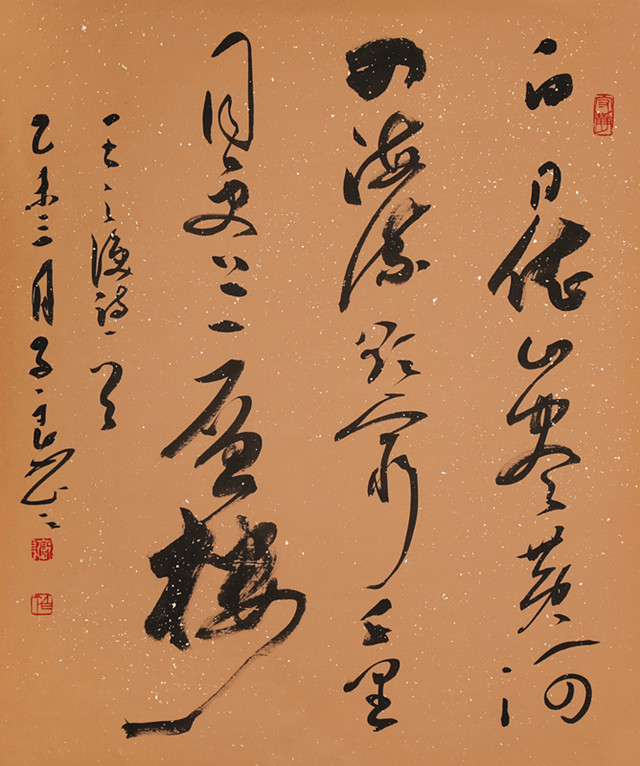 白日依山尽黄河
入海流欲穷千里
目更上一层楼
王之涣诗一首
乙未三月